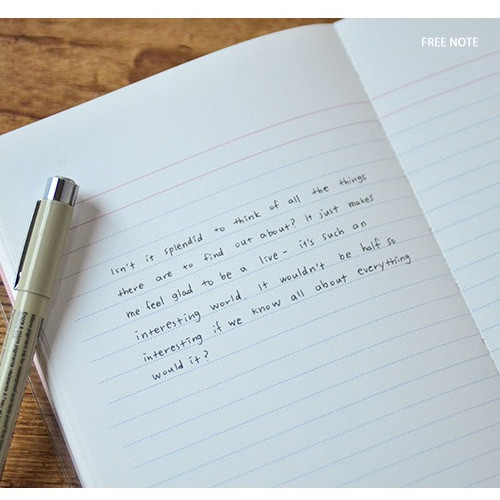 FREE NOTE
Isn't it splendid to think of all the things
there are to find out about? It just makes
me feel glad to be a live - it's such an
interesting world. It wouldn't be half so
interesting if we know all about everything
would it?